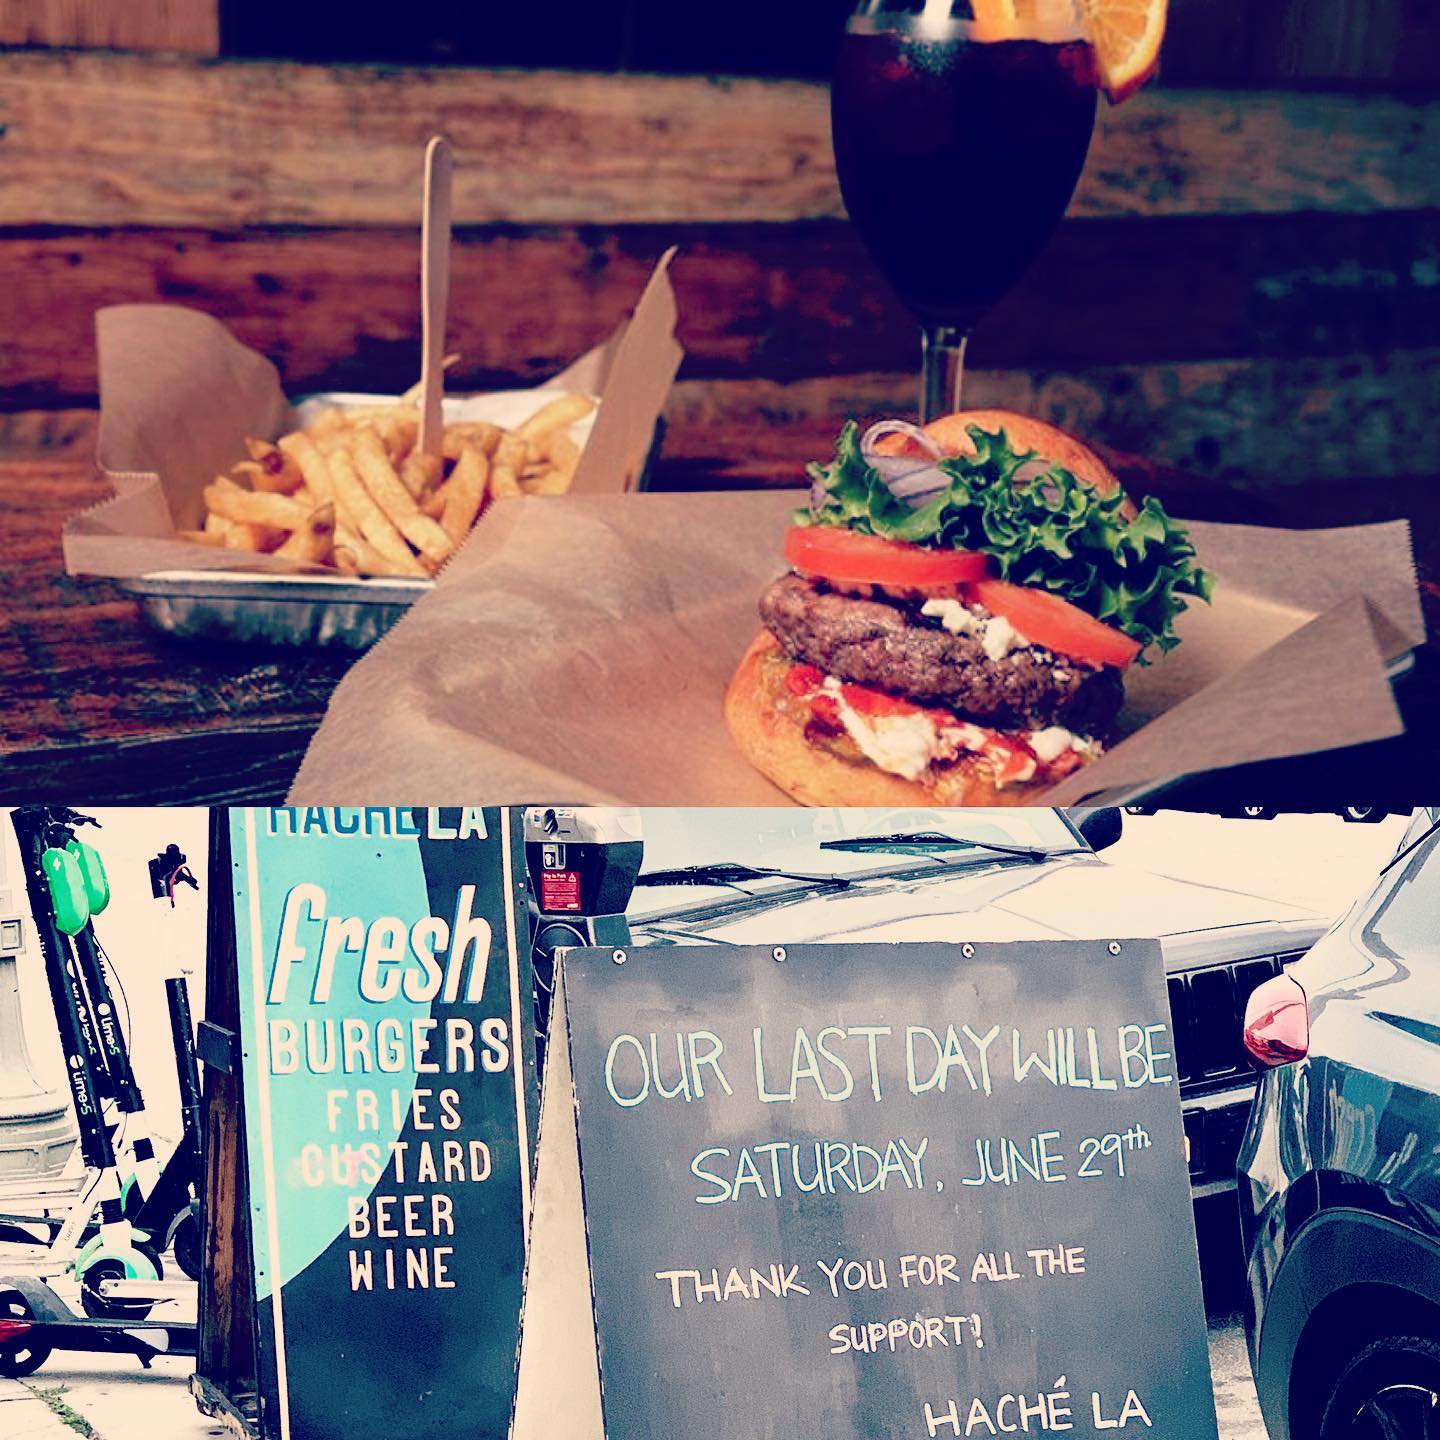 HACHÉ LA
fresh
BURGERS
FRIES
CUSTARD
BEER
WINE
Pay to Park
Lime-S
Lime-S
OUR LAST DAY WILL BE
SATURDAY, JUNE 29th.
THANK YOU FOR ALL THE
SUPPORT!
HACHÉ LA